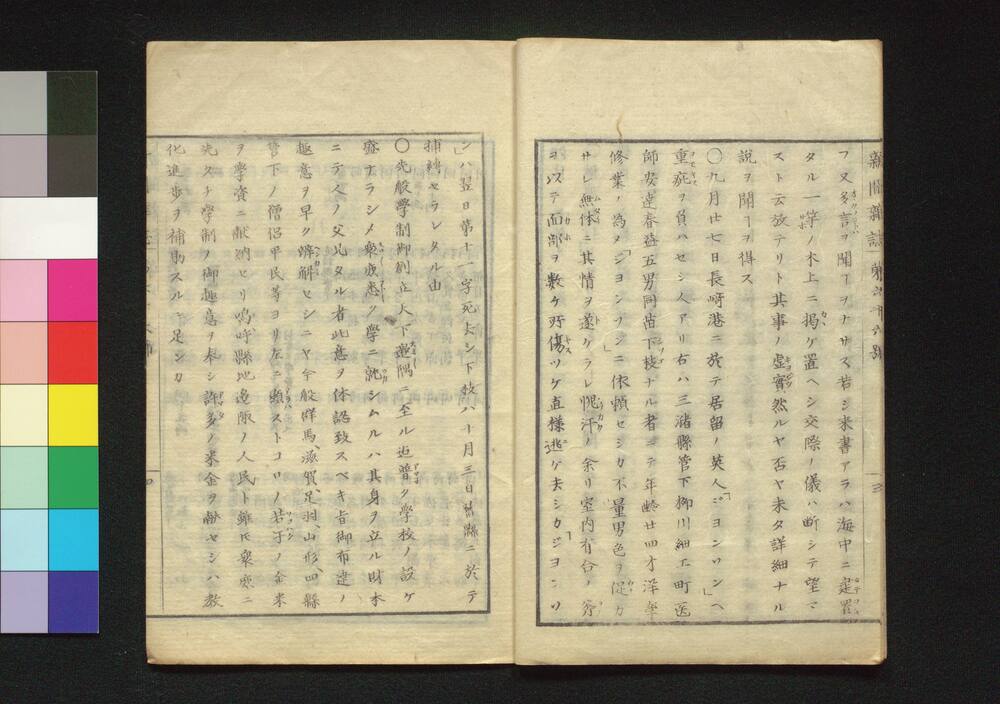 新聞雑誌 第六十六號
フ又多言ヲ聞ヿヲナサス若シ來書アラハ海中ニ定置
タル一竿ノ木上ニ掲ゲ置ヘシ交際ノ儀ハ断シテ望マ
スト云放テリト其事ノ虚實然ルヤ否ヤ未タ詳細ナル
説ヲ聞ヿヲ得ス
〇九月廿七日長崎港ニ於テ居留ノ英人「ジヨンソン」ヘ
重疵ヲ負ハセシ人アリ右ハ三潴縣管下柳川細工町医
師安達春益五男同苗下枝ナル者ニテ年齢廿四才洋学
修業ノ為メ「ジヨンソン」ニ依頼セシカ不量男色ヲ促カ
サレ無体ニ其情ヲ遂ケラレ愧汗ノ余リ室内有合ノ斧
ヲ以テ面部ヲ數ケ所傷ツケ直様迯ゲ去シカ「ジヨンソ
ン」ハ翌日第十一字死去シ下枝ハ十月三日其縣ニ於テ
捕縛セラレタル由
〇先般學制御創立天下邊隅ニ至ル迄普ク學校ノ設ケ
盛ナラシメ衆庶悉ク學ニ就シムルハ其身ヲ立ル財本
ニテ人ノ父兄タル者此意ヲ体認致スベキ旨御布達ノ
趣意ヲ早ク辨解セシニヤ今般群馬、滋賀、足羽、山形、四縣
管下ノ僧侶平民等ヨリ左ニ類ストコロノ若干ノ金米
ヲ學資ニ献納セリ嗚呼縣地邊陬ノ人民ト雖𪜈衆庶ニ
先タチ學制ノ御趣意ヲ奉シ許多ノ米金ヲ献セシハ教
化進歩ヲ補助スルニ足シカ